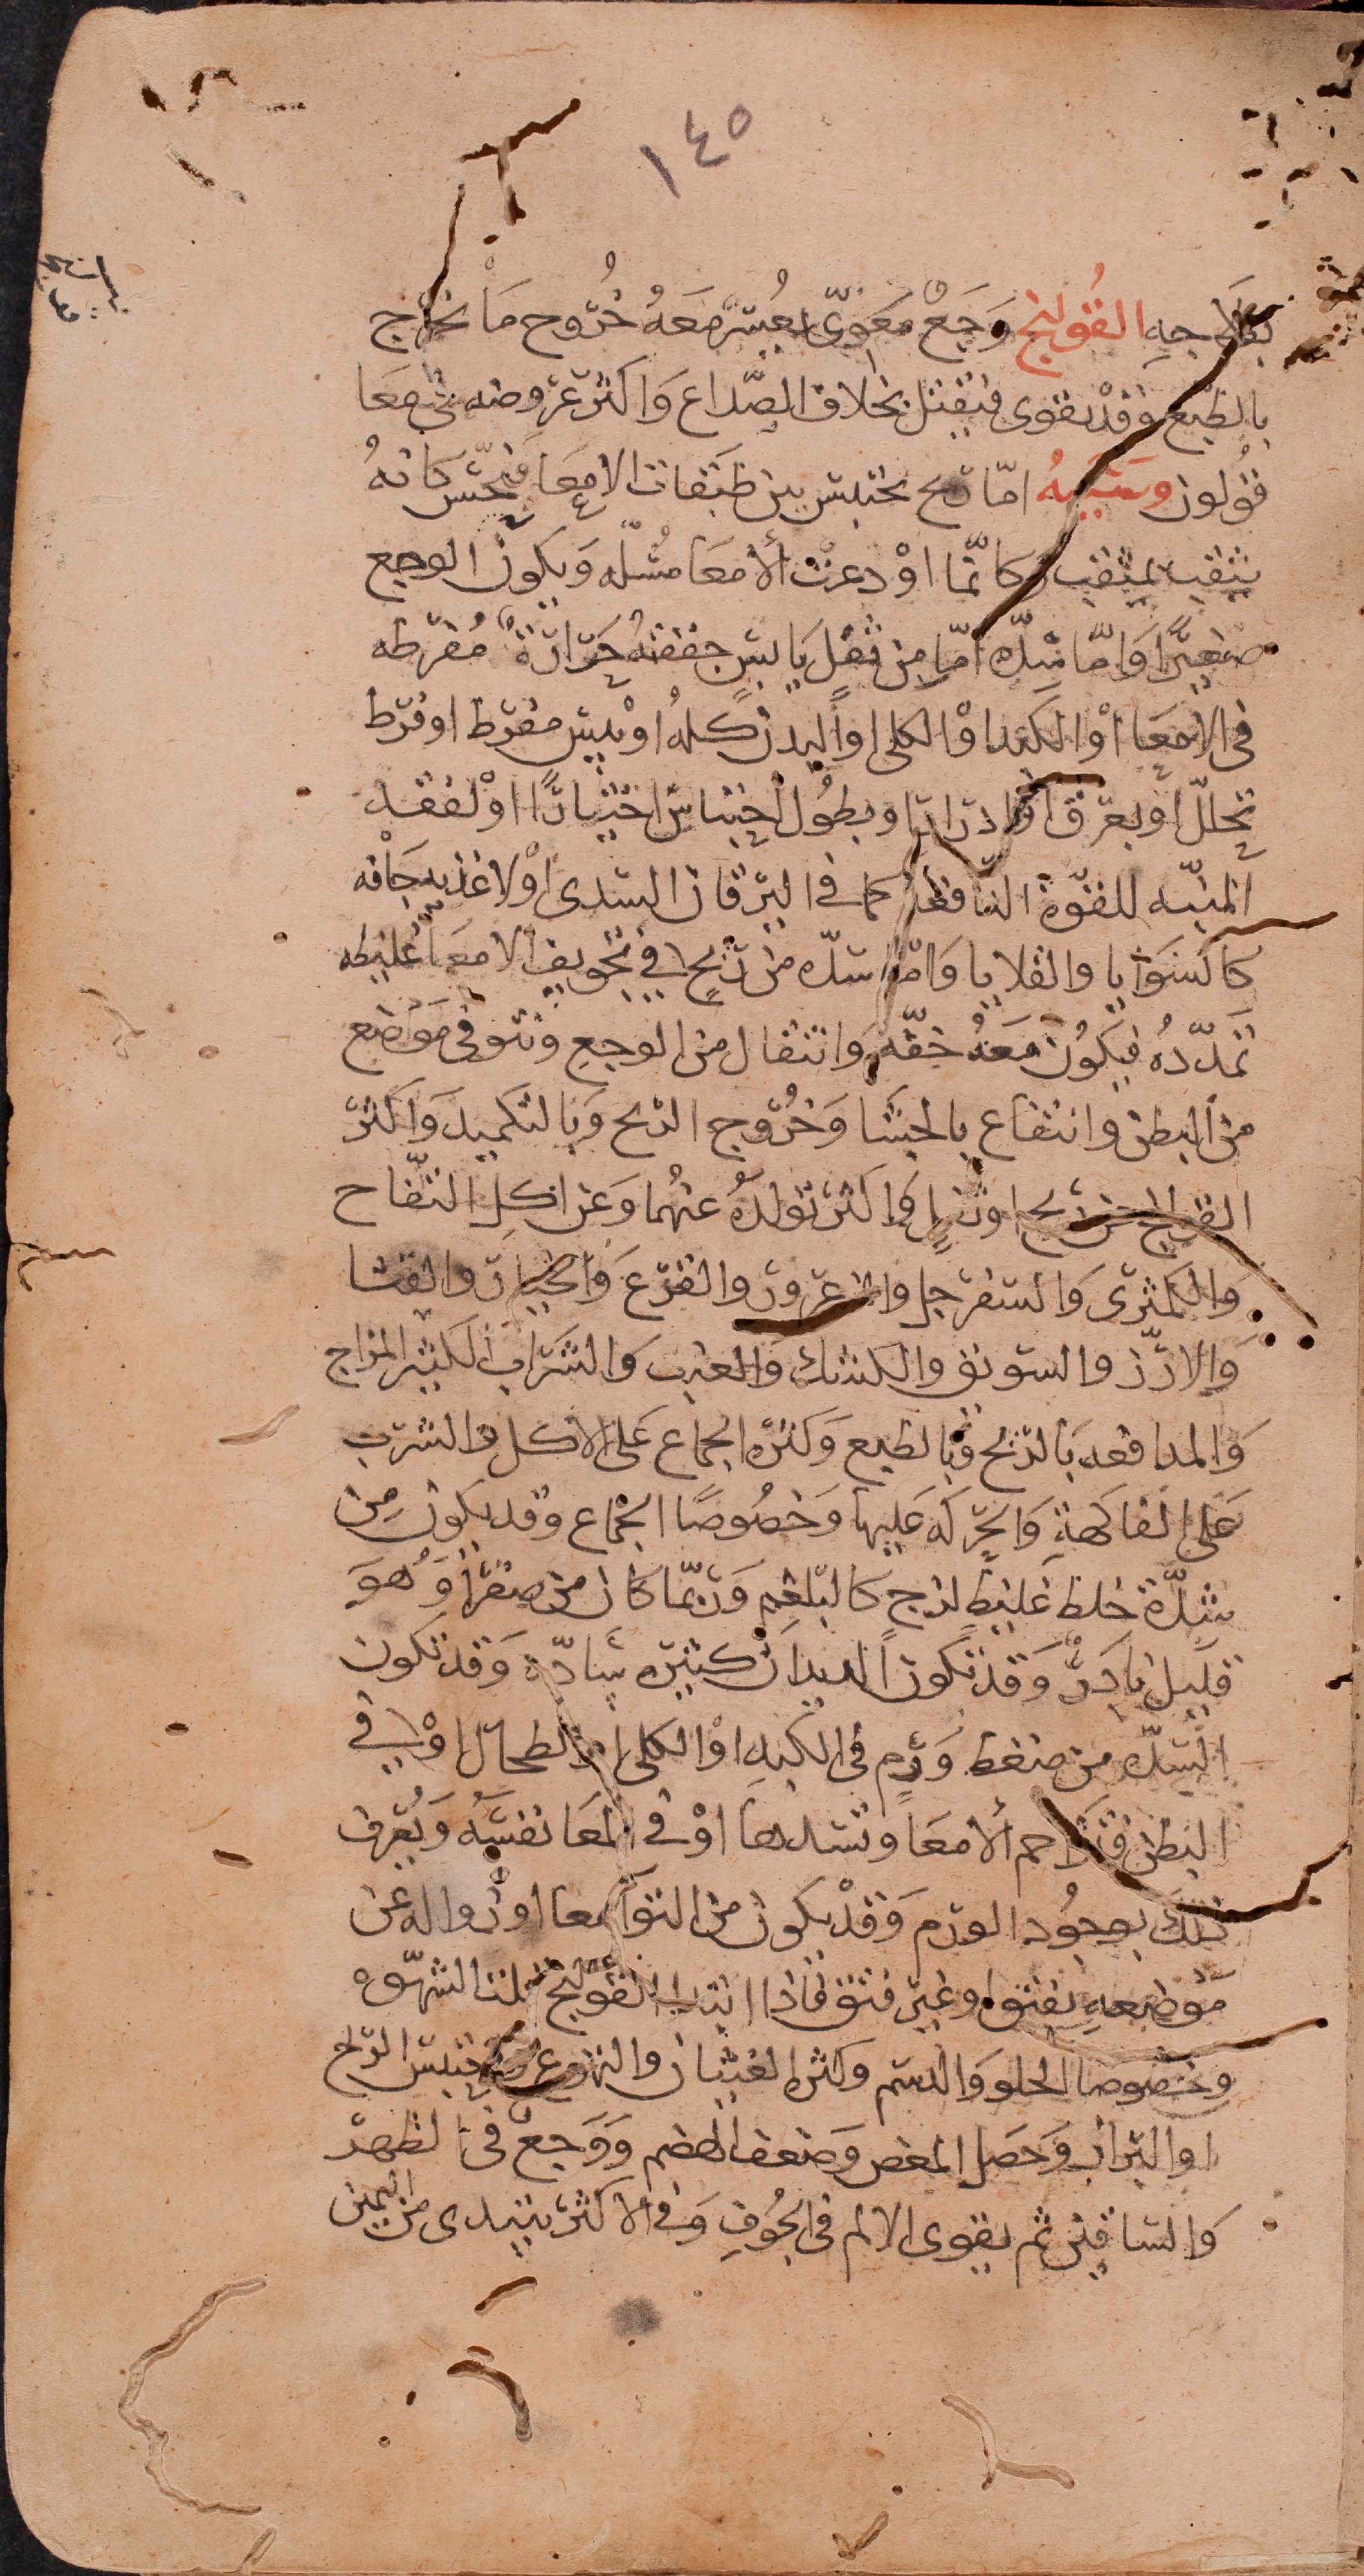 ١٤٥
بعلاجه القُولنج وَجَعٌ مَعَويّ يعُسَر مَعَهُ خُرُوج مَا يخرُج
بالطّبع وَقدْ يقوى فيقتل بخلاف الصّداع وَاكثر عرُوضه في معَا
قوُلون وسَبَبهُ امّا ريح يحتبس بين طَبَقات الامعَا فيحسّ كانهُ
يثقب بمثقب وكانّما اوْدعت الامعَا مسَلّه وَيكونُ الوجع
صغيرًا وَامّا سَدّه امّا من ثفل يَابسٍ جففتهُ حَرَارَةٌ مُفرطه
في الامعَا اوْ الكبد اوْ الكلى او البدن كلهُ اوْ يبس مفرط او فرط
تحلّل او بعرق او ادرار او بطُول احتباس اختيارًا اوْ لفقد
المنبّه للقوّة الدّافعة كما في اليرقان السددى اوْ لاغذيه جَافه
كالسَوَايا والقلايا وَامّا سدّه من ريحٍ في تجويف الامعَا غليظه
تمدّدهُ فيكوُن معهُ خفّه وَانتقال من الوجع ونتو في موَاضع
من البطن وانتفاع بالجشا وَخُرُوج الريح وَبالتكميد وَاكثر
القولنج من ريح او بلغم وَاكثر تولدهُ عنهُما وَعن اكلِ التفّاح
وَالكمثرى وَالسفرجل والزعرور والقرع وَالخيار والقثا
وَالارز والسويق والكشك وَالعنب وَالشرَاب الكثير المزاج
وَالمدافعه بَالريح وَبالطبع وَكثره الجمَاع عَلى الاكل والشرب
عَلى الفاكهةِ وَالحركه عَليها وَخصُوصًا الجمَاع وقد يكون مِن
سَدّة خلط غليظٍ لزج كالبلغم وَربّما كان من صفرا وَهوَ
قليل نادرٌ وَقد تكون الديدان كثيره سَادّه وَقد تكون
السدّه من ضغط وَرمٍ في الكبد اوْ الكلى او الطحال اوْ في
البطن فتزاحم الامعَا وتسدها اوْ في المعَا نفسَه وَيُعرف
ذلك بوجوُد الورم وَقدْ يكون من التوَا معا او زواله عن
مَوضعهِ بفتق او غير فتق فاذا ابتدا القولنج قلت الشهوه
وَخصُوصا الحلو وَالدسم وكثر الغثيان والتهوع واحتبس الريح
او البراز وَحَصل المغص وَضعف الهضم وَوَجعٌ في الظهر
وَالسَاقين ثم يقوى الالم في الجُوفِ وَفي الاكثر يبتدى من اليمين